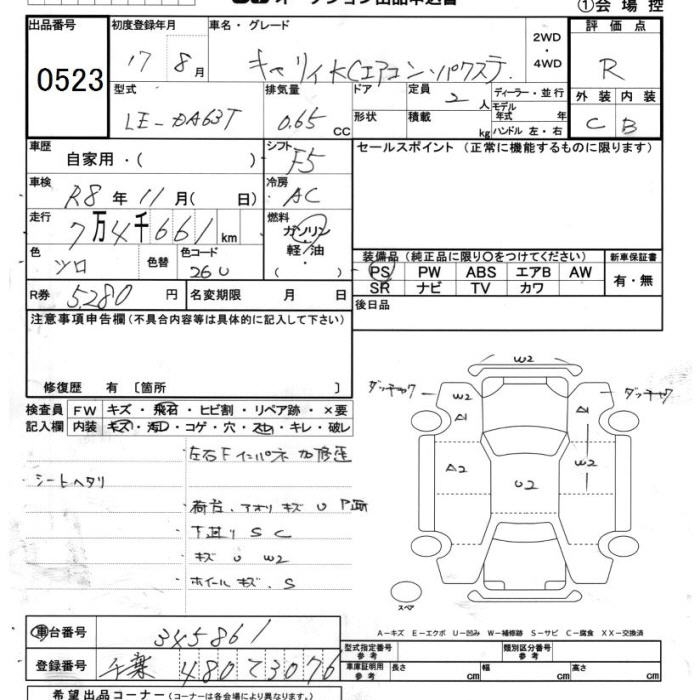 オークション出品申込書
①会場控
出品番号 初度登録年月 車名・グレード 2WD ・ 4WD 評価点
0523 17 8月 キャリィ KCエアコン・パワステ R
型式 排気量 ドア 定員 2人 ディーラー・並行 外装 内装
LE-DA63T 0.65 CC 形状 積載 kg モデル年式 年 ハンドル 左・右 C B
車歴 自家用・( ) シフト F5 セールスポイント (正常に機能するものに限ります)
車検 R8年 11月( 日) 冷房 AC
走行 7万4千661km 燃料 ガソリン 軽/油 ( )
色 シロ 色替 色コード 26U
装備品 (純正品に限り○をつけてください) 新車保証書
PS PW ABS エアB AW 有・無
SR ナビ TV カワ
R券 5,280円 名変期限 月 日 後日品
注意事項申告欄(不具合内容等は具体的に記入して下さい)
修復歴 有 [箇所 ]
検査員 FW キズ・飛石・ヒビ割・リペア跡・×要
記入欄 内装 キズ・汚レ・コゲ・穴・スレ・キレ・破レ
・左右Fインパネ 加修遅
・シートヘタリ
・荷台、アオリ キズ U P跡
・下回り S C
・キズ U W2
・ホイールキズ、S
W2
W2
A1
A1
A2
U2
W2
スペア
A-キズ E-エクボ U-凹み W-補修跡 S-サビ C-腐食 XX-交換済
車台番号 345861
登録番号 千葉 480 て 3076
型式指定番号 参考 類別区分番号 参考
車庫証明用 参考 長さ cm 幅 cm 高さ cm
希望出品コーナー (コーナーは各会場により異なります。)